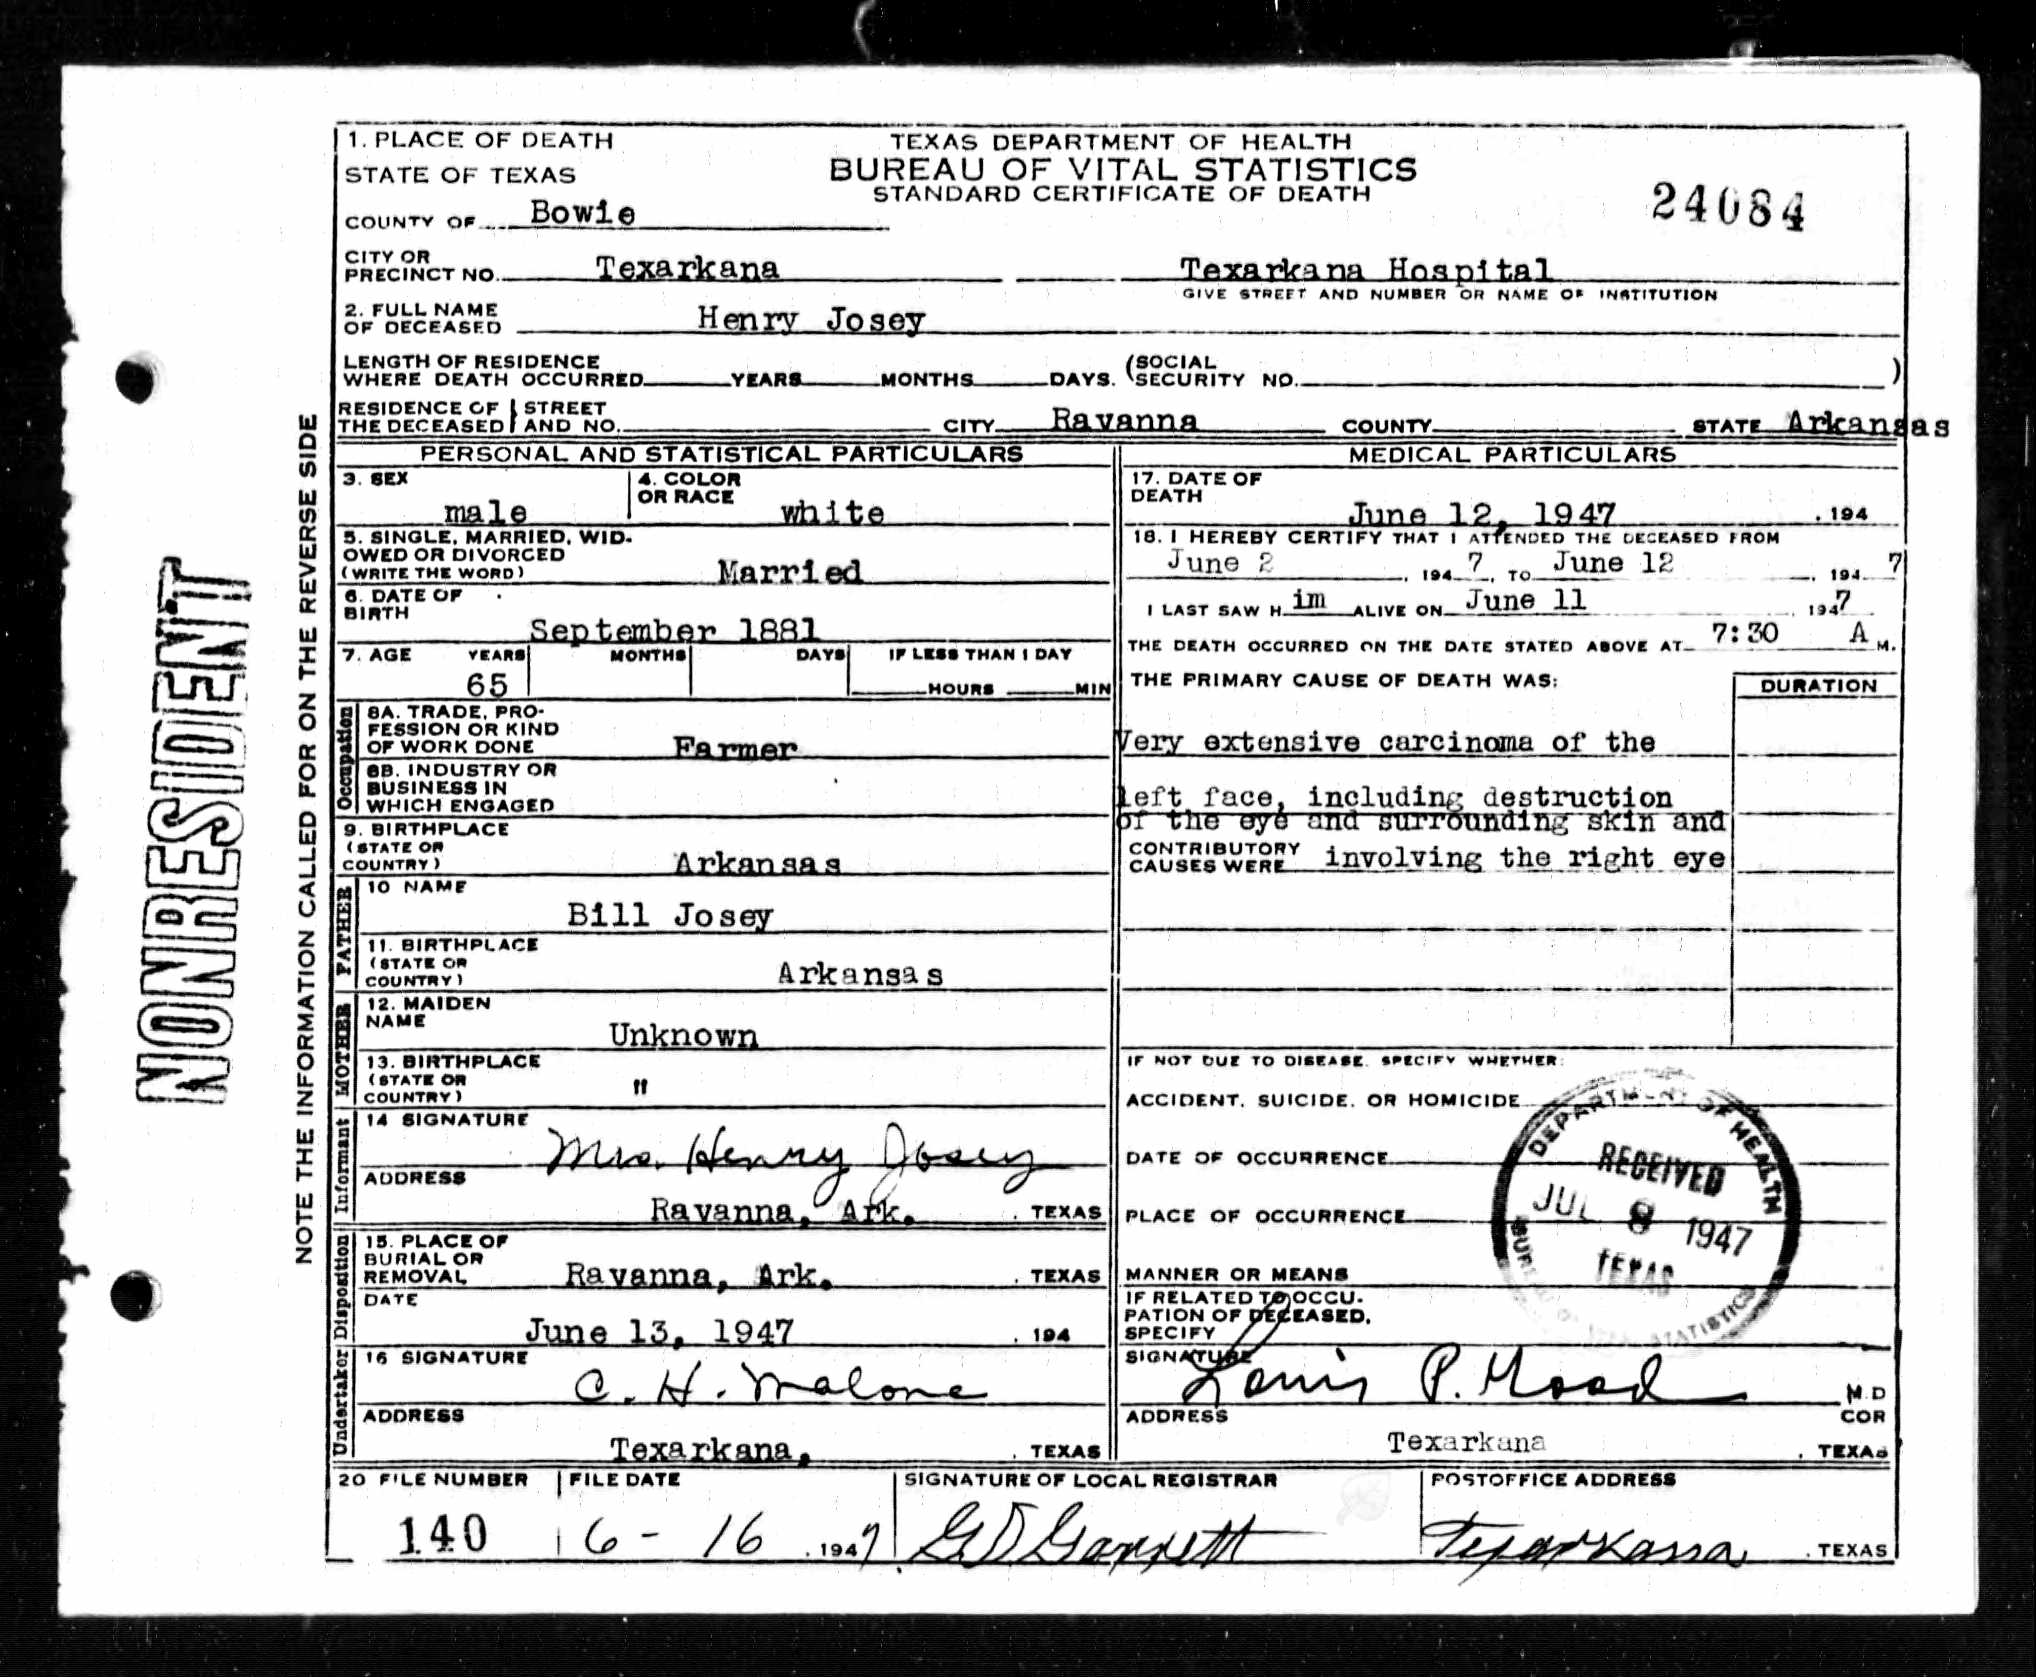 1. PLACE OF DEATH
STATE OF TEXAS
TEXAS DEPARTMENT OF HEALTH
BUREAU OF VITAL STATISTICS
STANDARD CERTIFICATE OF DEATH
24084
COUNTY OF Bowie
CITY OR PRECINCT NO. Texarkana Texarkana Hospital
GIVE STREET AND NUMBER OR NAME OF INSTITUTION
2. FULL NAME OF DECEASED Henry Josey
LENGTH OF RESIDENCE WHERE DEATH OCCURRED YEARS MONTHS DAYS. (SOCIAL SECURITY NO. )
RESIDENCE OF THE DECEASED STREET AND NO. CITY Ravanna COUNTY STATE Arkansas
PERSONAL AND STATISTICAL PARTICULARS
3. SEX male
4. COLOR OR RACE white
5. SINGLE, MARRIED, WIDOWED OR DIVORCED (WRITE THE WORD) Married
6. DATE OF BIRTH September 1881
7. AGE YEARS MONTHS DAYS IF LESS THAN 1 DAY
65 HOURS MIN
Occupation
8A. TRADE, PROFESSION OR KIND OF WORK DONE Farmer
8B. INDUSTRY OR BUSINESS IN WHICH ENGAGED
9. BIRTHPLACE (STATE OR COUNTRY) Arkansas
FATHER
10 NAME Bill Josey
11. BIRTHPLACE (STATE OR COUNTRY) Arkansas
MOTHER
12. MAIDEN NAME Unknown
13. BIRTHPLACE (STATE OR COUNTRY) "
Informant
14 SIGNATURE Mrs. Henry Josey
ADDRESS Ravanna, Ark. . TEXAS
Disposition
15. PLACE OF BURIAL OR REMOVAL Ravanna, Ark. . TEXAS
DATE June 13, 1947 . 194
Undertaker
16 SIGNATURE C. H. Malone
ADDRESS Texarkana, . TEXAS
MEDICAL PARTICULARS
17. DATE OF DEATH June 12, 1947 . 194
18. I HEREBY CERTIFY THAT I ATTENDED THE DECEASED FROM
June 2 , 194 7, TO June 12 , 194 7
I LAST SAW H im ALIVE ON June 11 , 1947
THE DEATH OCCURRED ON THE DATE STATED ABOVE AT 7:30 A M.
THE PRIMARY CAUSE OF DEATH WAS: DURATION
Very extensive carcinoma of the
left face, including destruction
of the eye and surrounding skin and
CONTRIBUTORY CAUSES WERE involving the right eye
IF NOT DUE TO DISEASE, SPECIFY WHETHER:
ACCIDENT, SUICIDE, OR HOMICIDE
DATE OF OCCURRENCE
PLACE OF OCCURRENCE
MANNER OR MEANS
IF RELATED TO OCCUPATION OF DECEASED, SPECIFY
SIGNATURE Louis P. Good M.D
ADDRESS COR
Texarkana . TEXAS
DEPARTMENT OF HEALTH
RECEIVED
JUL 8 1947
TEXAS
STATISTICS
20 FILE NUMBER FILE DATE SIGNATURE OF LOCAL REGISTRAR POSTOFFICE ADDRESS
140 6 - 16 . 1947 Texarkana . TEXAS
NOTE THE INFORMATION CALLED FOR ON THE REVERSE SIDE
NONRESIDENT